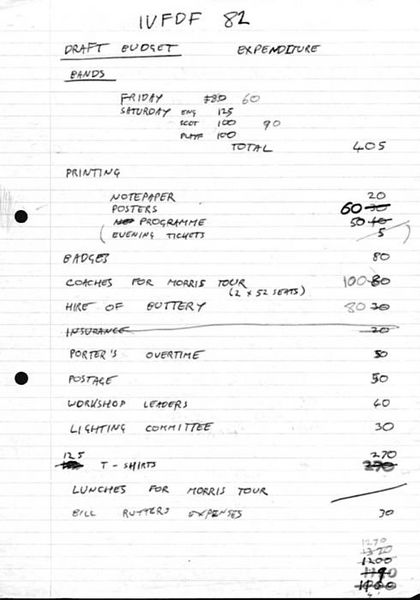 IVFDF 82
DRAFT BUDGET EXPENDITURE
BANDS
FRIDAY £80 60
SATURDAY ENG 125
SCOT 100 90
PLAYF 100
TOTAL 405
PRINTING
NOTEPAPER 20
POSTERS 60 30
PROGRAMME 50 40
( EVENING TICKETS 5 )
BADGES 80
COACHES FOR MORRIS TOUR 100 80
(2 x 52 SEATS)
HIRE OF BUTTERY 80 30
INSURANCE 20
PORTER'S OVERTIME 50
POSTAGE 50
WORKSHOP LEADERS 40
LIGHTING COMMITTEE 30
125 T-SHIRTS 270
270
LUNCHES FOR MORRIS TOUR
BILL RUTTERS EXPENSES 30
1270
1320
1200